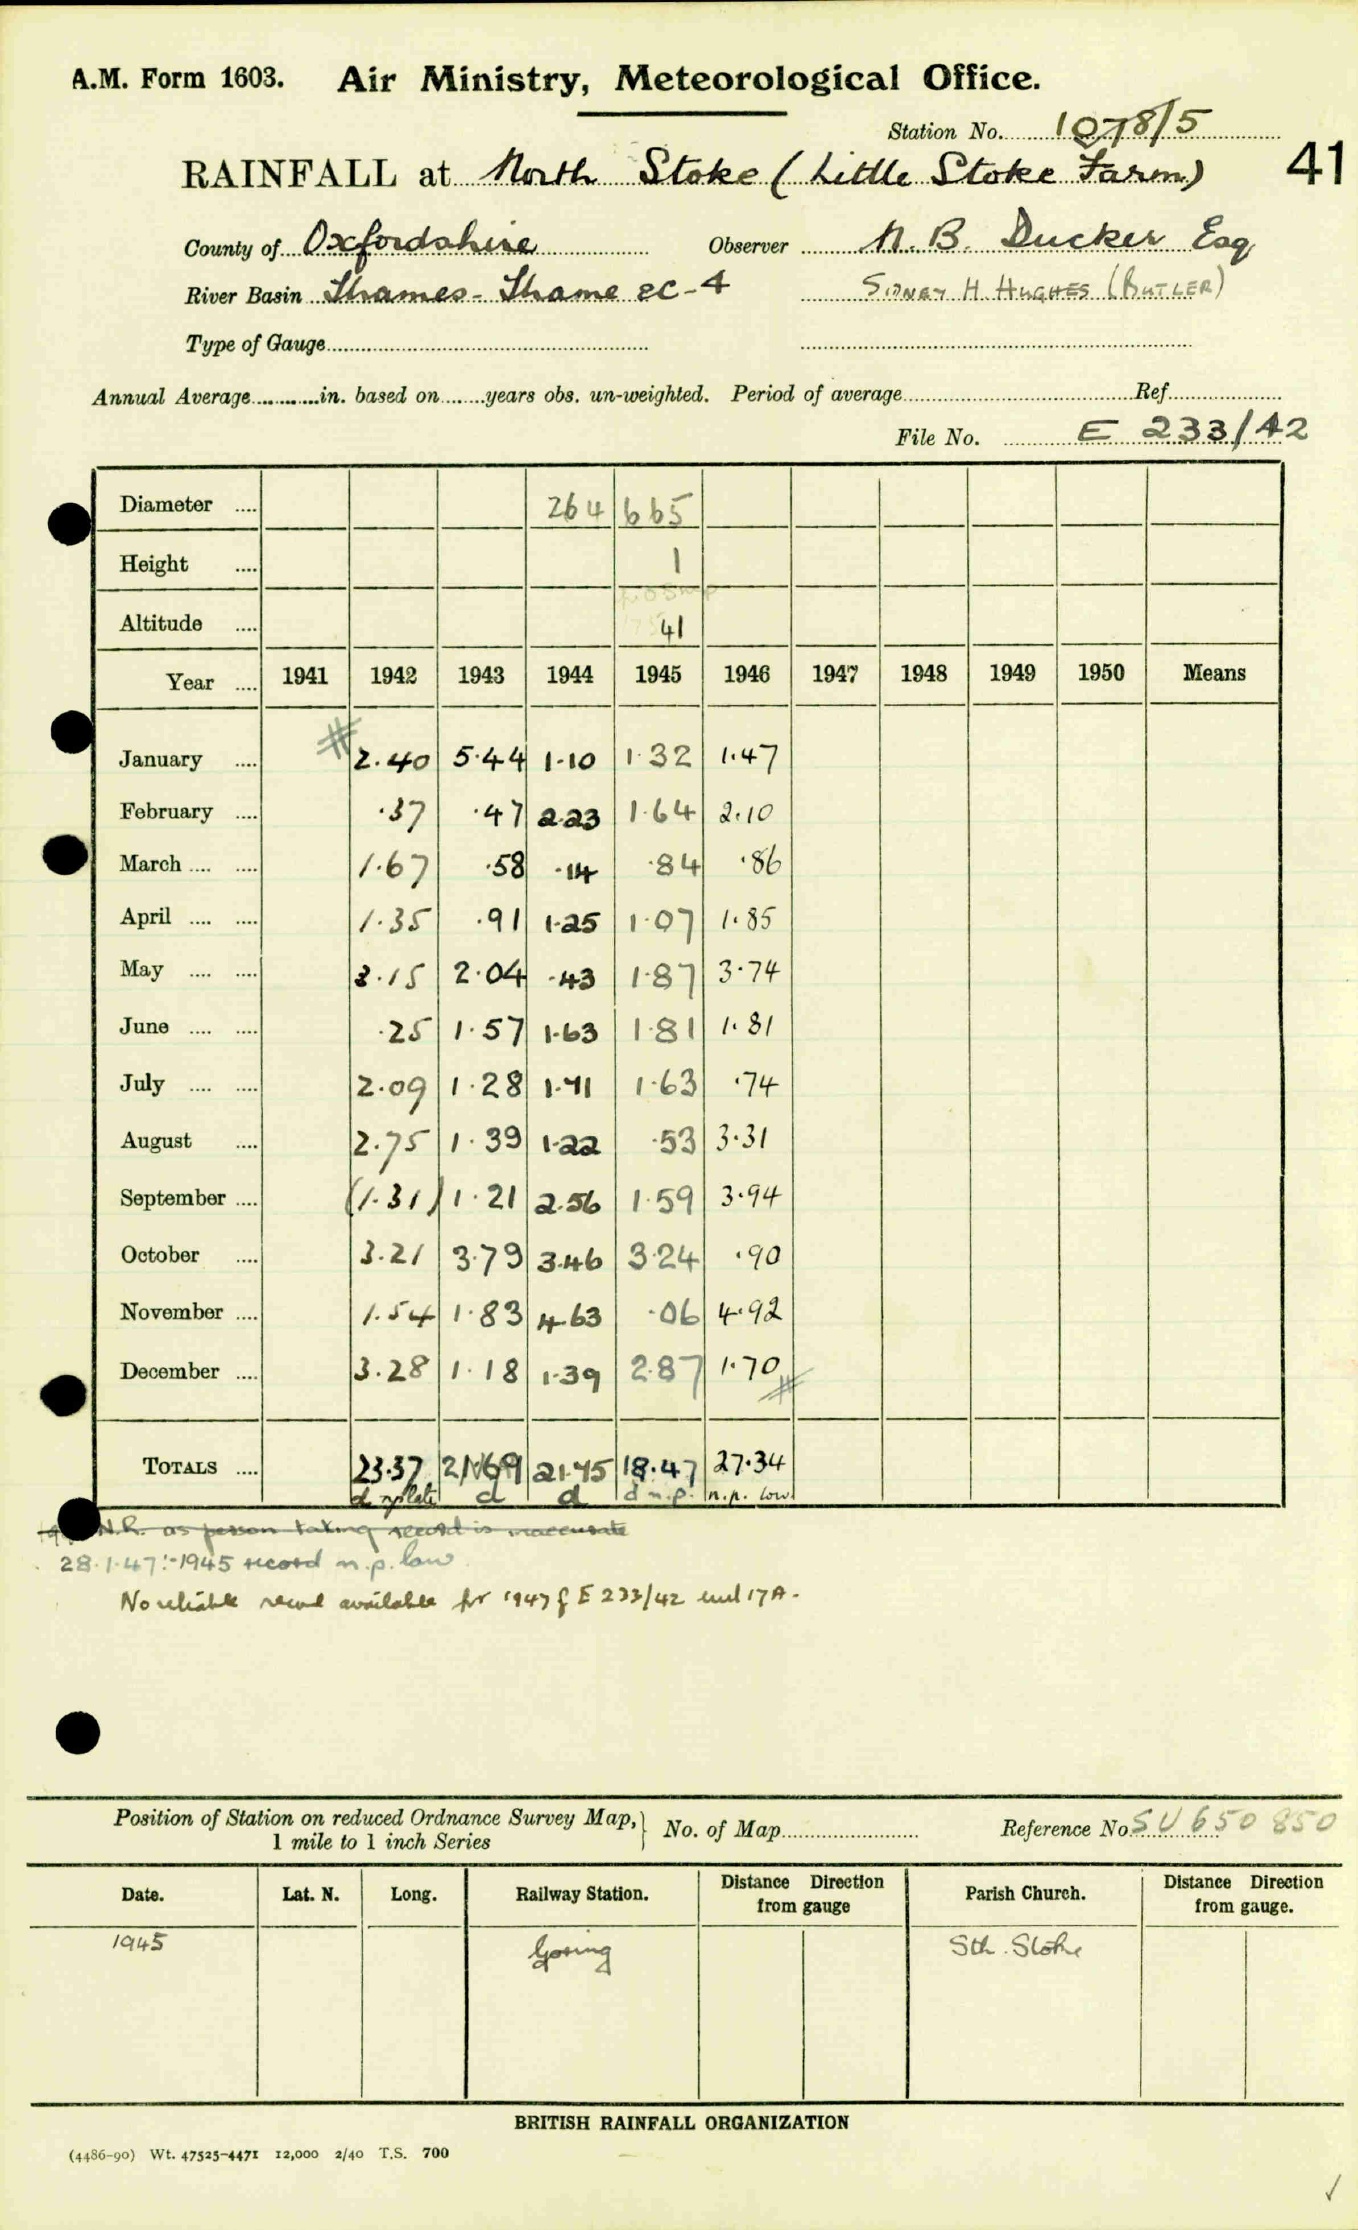 A.M. Form 1603. Air Ministry, Meteorological Office.
Station No. 1078/5
RAINFALL at North Stoke (Little Stoke Farm) 41
County of Oxfordshire Observer N. B. Ducker Esq
River Basin Thames - Thame &C - 4 SIDNEY H. HUGHES (BUTLER)
Type of Gauge
Annual Average in. based on years obs. un-weighted. Period of average Ref.
File No. E 233/42
Diameter 264 665
Height 1
Altitude 41
Year 1941 1942 1943 1944 1945 1946 1947 1948 1949 1950 Means
January # 2.40 5.44 1.10 1.32 1.47
February .37 .47 2.23 1.64 2.10
March 1.67 .58 .14 .84 .86
April 1.35 .91 1.25 1.07 1.85
May 3.15 2.04 .43 1.87 3.74
June .25 1.57 1.63 1.81 1.81
July 2.09 1.28 1.71 1.63 .74
August 2.75 1.39 1.22 .53 3.31
September (1.31) 1.21 2.56 1.59 3.94
October 3.21 3.79 3.46 3.24 .90
November 1.54 1.83 4.63 .06 4.92
December 3.28 1.18 1.39 2.87 1.70 #
TOTALS 23.37 21.69 21.75 18.47 27.34
d d d d n.p. n.p. low
N.R. as person taking record is inaccurate
28.1.47:-1945 record n.p. low
No reliable record available for 1947 E 233/42 encl 17A.
Position of Station on reduced Ordnance Survey Map, 1 mile to 1 inch Series } No. of Map Reference No. SU 650 850
Date. Lat. N. Long. Railway Station. Distance Direction from gauge Parish Church. Distance Direction from gauge.
1945 Goring Sth. Stoke
BRITISH RAINFALL ORGANIZATION
(4486-90) Wt. 47525-4471 12,000 2/40 T.S. 700